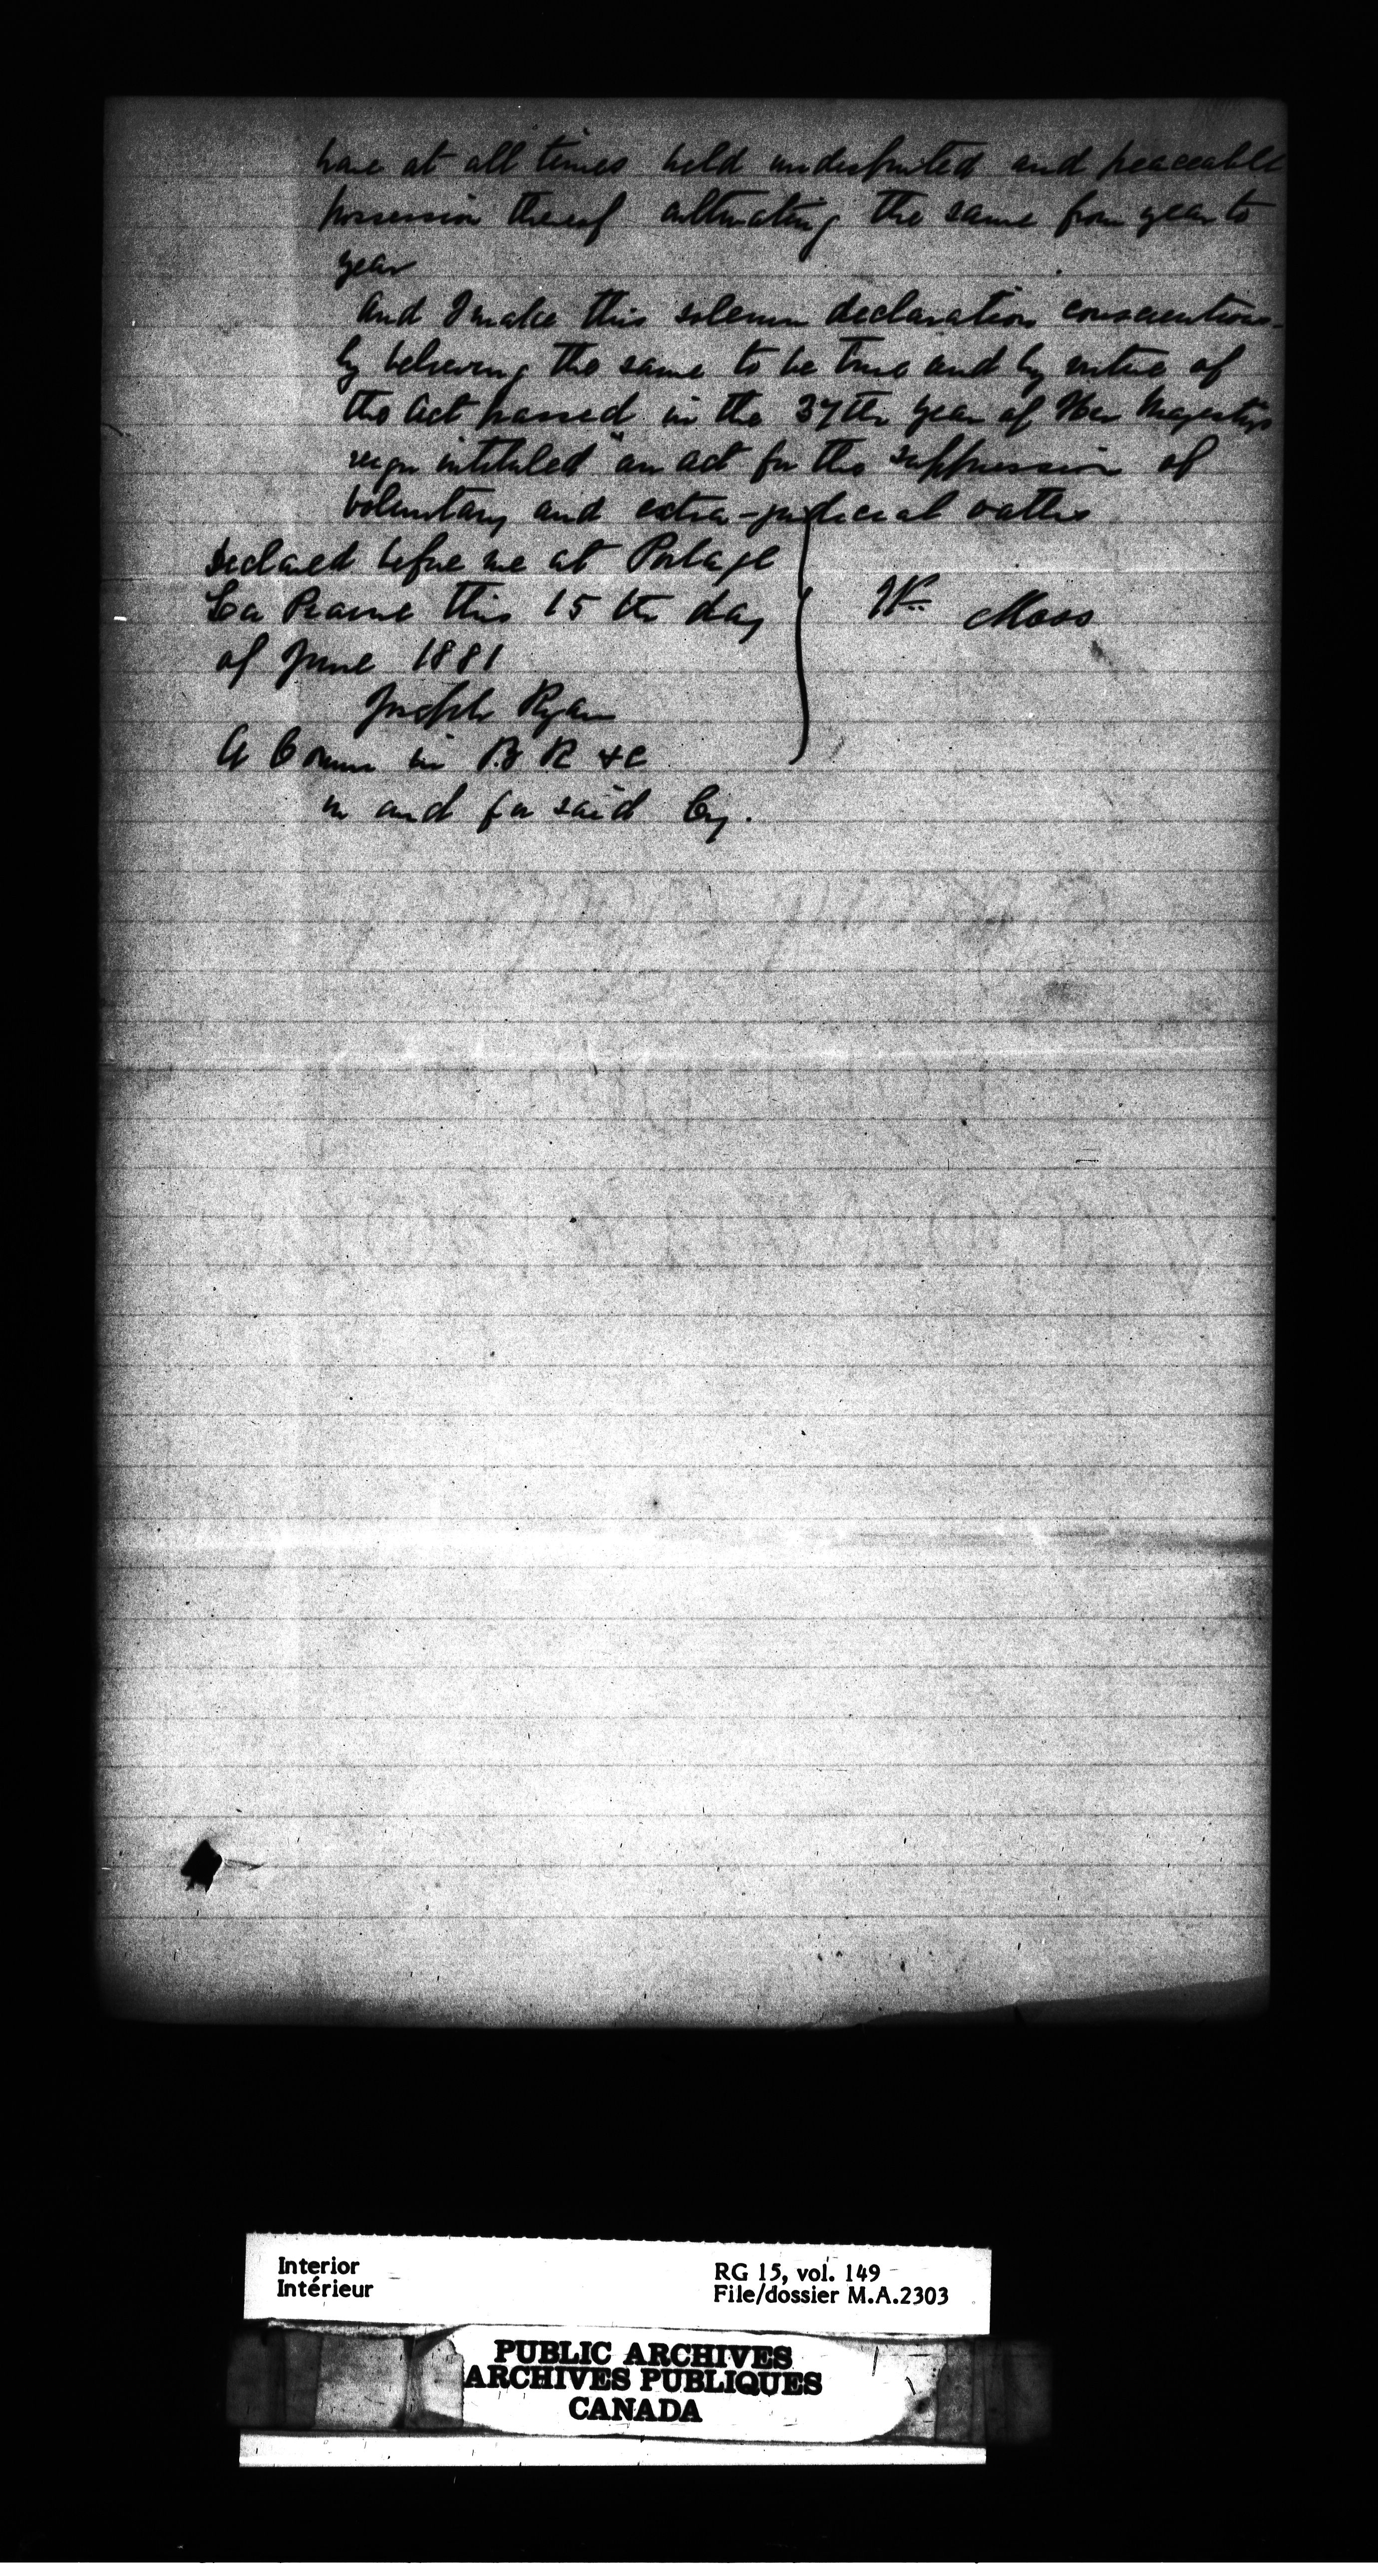 have at all times held undisputed and peaceable
possession thereof cultivating the same from year to
year
And I make this solemn declaration conscientious-
ly believing the same to be true and by virtue of
the Act passed in the 37th year of Her Majestys
reign intituled "an act for the suppression of
voluntary and extra-judicial oaths
Declared before me at Portage
La Prairie this 15th day
of June 1881
Joseph Ryan
A Comm in B R &c
in and for said Cy.
Wm Moss
Interior
Intérieur
RG 15, vol. 149
File/dossier M.A.2303
PUBLIC ARCHIVES
ARCHIVES PUBLIQUES
CANADA